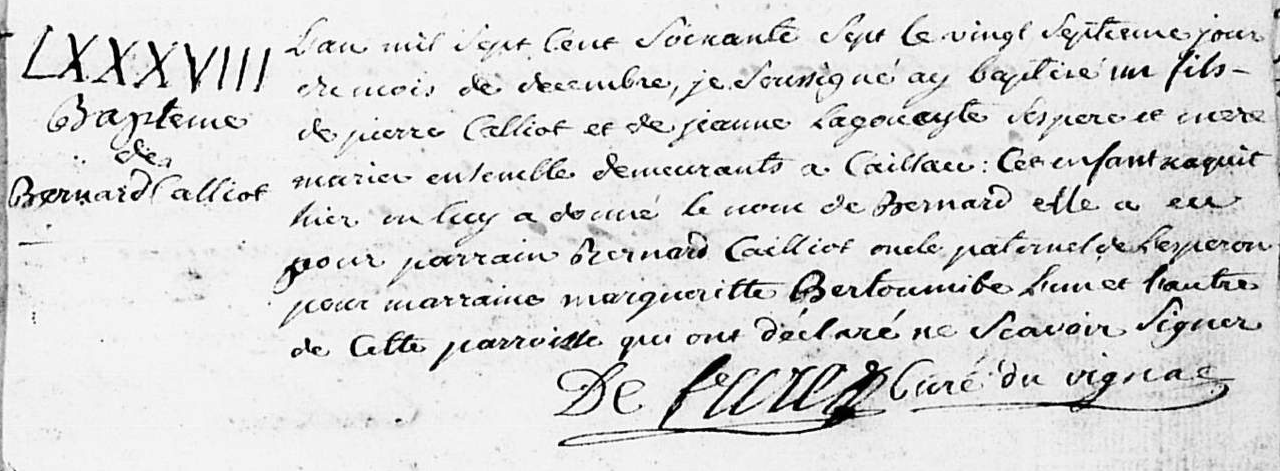 LXXXVIII
Bapteme
de
Bernard Calliot
L'an mil sept cent soixante sept le vingt septieme jour
du mois de decembre, je soussigné ay baptisé un fils
de pierre Calliot et de jeanne Lagoueyte ses pere et mere
mariés ensemble demeurants a Caillau : Cet enfant naquit
hier on luy a donné le nom de Bernard elle a eu
pour parrain Bernard Cailliot oncle paternel de Lesperon
pour marraine margueritte Bertoumibe L'un et L'autre
de Cette parroisse qui ont déclaré ne Scavoir Signer
De Curé du vignac